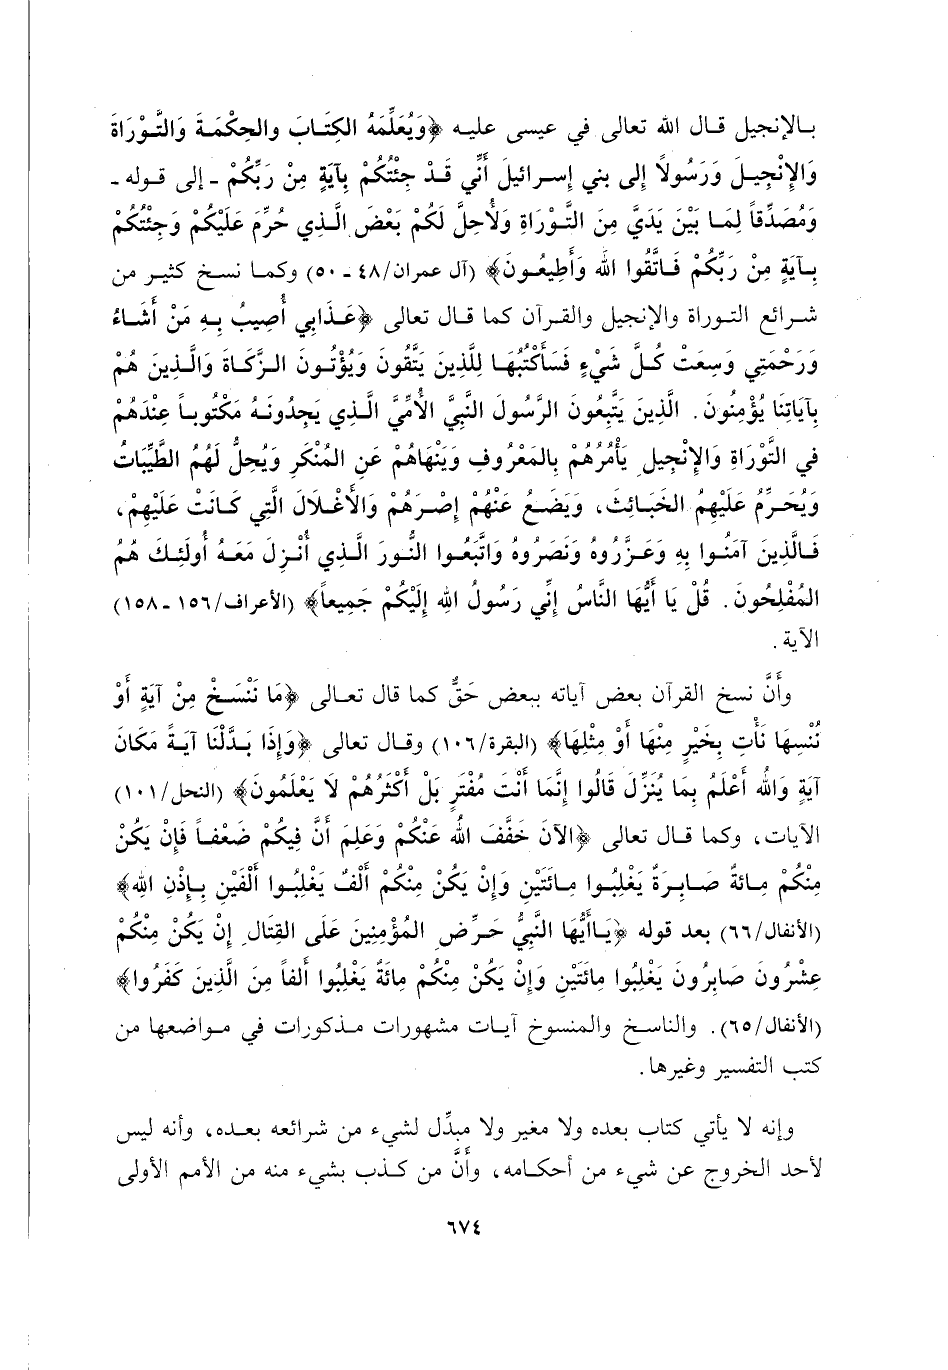 بالإنجيل قال الله تعالى في عيسى عليه ﴿وَيُعَلِّمَهُ الكِتَابَ والحِكْمَةَ وَالتَّوْرَاةَ
وَالإِنْجِيلَ وَرَسُولاً إلى بني إسرائيلَ أَنِّي قَدْ جِئْتُكُمْ بِآيَةٍ مِنْ رَبِّكُمْ - إلى قوله -
وَمُصَدِّقاً لِمَا بَيْنَ يَدَيَّ مِنَ التَّوْرَاةِ وَلأُحِلَّ لَكُمْ بَعْضَ الَّذِي حُرِّمَ عَلَيْكُمْ وَجِئْتُكُمْ
بِآيَةٍ مِنْ رَبِّكُمْ فَاتَّقُوا الله وَأَطِيعُونَ﴾ (آل عمران/٤٨ - ٥٠) وكما نسخ كثير من
شرائع التوراة والإنجيل والقرآن كما قال تعالى ﴿عَذَابِي أُصِيبُ بِهِ مَنْ أَشَاءُ
وَرَحْمَتِي وَسِعَتْ كُلَّ شَيْءٍ فَسَأَكْتُبُهَا لِلَّذِينَ يَتَّقُونَ وَيُؤْتُونَ الزَّكَاةَ وَالَّذِينَ هُمْ
بِآيَاتِنَا يُؤْمِنُونَ. الَّذِينَ يَتَّبِعُونَ الرَّسُولَ النَّبِيَّ الأُمِّيَّ الَّذِي يَجِدُونَهُ مَكْتُوباً عِنْدَهُمْ
في التَّوْرَاةِ وَالإِنْجِيلِ يَأْمُرُهُمْ بِالمَعْرُوفِ وَيَنْهَاهُمْ عَنِ المُنْكَرِ وَيُحِلُّ لَهُمُ الطَّيِّبَاتُ
وَيُحَرِّمُ عَلَيْهِمُ الخَبَائِثَ، وَيَضَعُ عَنْهُمْ إِصْرَهُمْ وَالأَغْلَالَ الَّتِي كَانَتْ عَلَيْهِمْ،
فَالَّذِينَ آمَنُوا بِهِ وَعَزَّرُوهُ وَنَصَرُوهُ وَاتَّبَعُوا النُّورَ الَّذِي أُنْزِلَ مَعَهُ أُولَئِكَ هُمُ
المُفْلِحُونَ. قُلْ يَا أَيُّهَا النَّاسُ إِنِّي رَسُولُ اللهِ إِلَيْكُمْ جَمِيعاً﴾ (الأعراف/١٥٦ - ١٥٨)
الآية.
وأَنَّ نسخ القرآن بعض آياته ببعض حَقٌّ كما قال تعالى ﴿مَا نَنْسَخْ مِنْ آيَةٍ أَوْ
نُنْسِهَا نَأْتِ بِخَيْرٍ مِنْهَا أَوْ مِثْلِهَا﴾ (البقرة/١٠٦) وقال تعالى ﴿وَإِذَا بَدَّلْنَا آيَةً مَكَانَ
آيَةٍ وَاللهُ أَعْلَمُ بِمَا يُنَزِّلَ قَالُوا إِنَّمَا أَنْتَ مُفْتَرٍ بَلْ أَكْثَرُهُمْ لَا يَعْلَمُونَ﴾ (النحل/١٠١)
الآيات، وكما قال تعالى ﴿الآنَ خَفَّفَ اللهُ عَنْكُمْ وَعَلِمَ أَنَّ فِيكُمْ ضَعْفاً فَإِنْ يَكُنْ
مِنْكُمْ مِائةٌ صَابِرَةٌ يَغْلِبُوا مِائَتَيْنِ وَإِنْ يَكُنْ مِنْكُمْ أَلْفٌ يَغْلِبُوا أَلْفَيْنِ بِإِذْنِ اللهِ﴾
(الأنفال/٦٦) بعد قوله ﴿يَاأَيُّهَا النَّبِيُّ حَرِّضِ المُؤْمِنِينَ عَلَى القِتَالِ إِنْ يَكُنْ مِنْكُمْ
عِشْرُونَ صَابِرُونَ يَغْلِبُوا مِائَتَيْنِ وَإِنْ يَكُنْ مِنْكُمْ مِائَةٌ يَغْلِبُوا أَلفاً مِنَ الَّذِينَ كَفَرُوا﴾
(الأنفال/٦٥). والناسخ والمنسوخ آيات مشهورات مذكورات في مواضعها من
كتب التفسير وغيرها.
وإنه لا يأتي كتاب بعده ولا مغير ولا مبدِّل لشيء من شرائعه بعده، وأنه ليس
لأحد الخروج عن شيء من أحكامه، وأَنَّ من كذب بشيء منه من الأمم الأولى
٦٧٤